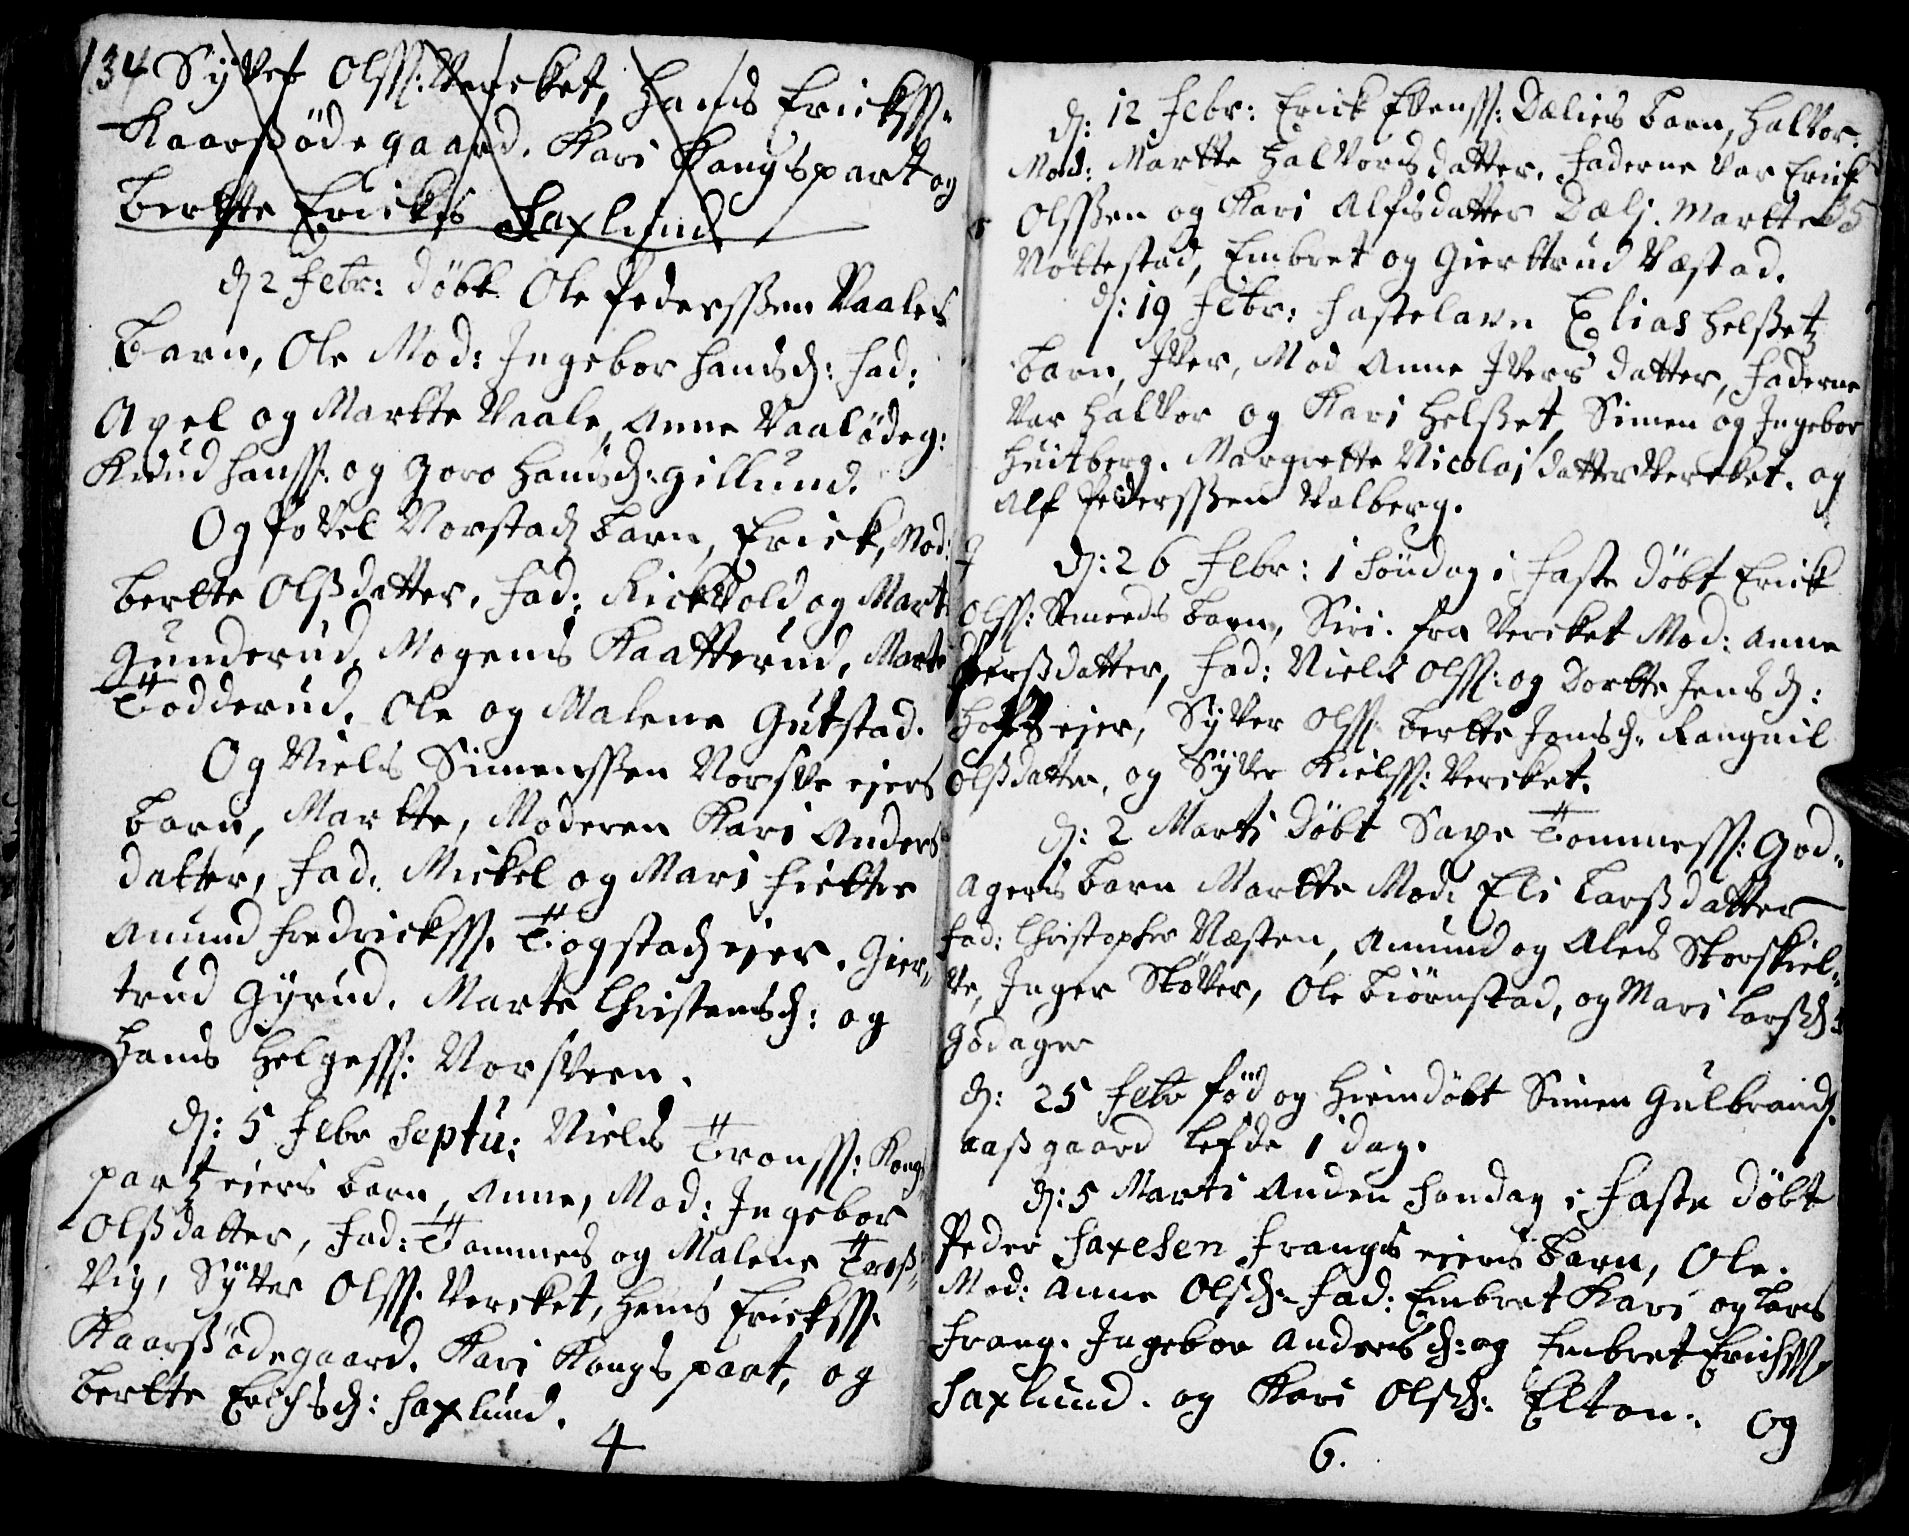 134 Syver Olss: Vercket, Hans Erickss:
Kaarßödegaard. Kari Kongspart og
Berthe Ericks Saxlund
d 2 Febr: döbt Ole Pederssen Vaalers
Barn, Ole Mod: Ingebor Hansd: Fad:
Axel og Marthe Vaale, Anne Vaalödeg:
Knud Hanss: og Goro Hansd: Gillund.
Og Povel Norstad Barn, Erick, Mod:
Berthe Olßdatter, Fad: Rickvold og Mart
Gunderud, Mogens Kaatterud, Marte
Todderud, Ole og Malene Gutstad.
Og Niels Simenssen Norsve ejers
Barn, Marthe, Moderen Kari Anders
datter, Fad: Mickel og Mari Fielter
Amund Fredrickss. Togstad ejer. Gier,,
trud Gyrud. Marte Christensd: og
Hans Helgess: Norsveen.
d: 5 Febr Septu: Niels Tronss: Kong
partz ejers Barn, Anne, Mod: Ingebor
Olßdatter, Fad: Tommes og Malene Troß,,
vig, Syver Olss. Vercket, Hans Erickss.
Kaarßödegaard. Kari Kongspart, og
Berthe Erichsd: Saxlund.
4
d: 12 Febr: Erick Evenss: Dælies Barn, Halvor.
Mod: Marthe Halvordsdatter. Faderne var Erick
Olssen og Kari Alfsdatter Dæli. Marthe
Nöttestad, Embret og Giertrud Væstad.
d: 19 Febr: Fastelavn Elias Helßetz
Barn, Iver, Mod Anne Ivers datter, Faderne
var Halvor og Kari Helßet, Simen og Ingebor
Huitberg. Margrethe Nicolaj datter Vercket. og
Alf Pederssen Valberg.
d: 26 Febr: 1 Söndag i Faste döbt Erick
Olss: Smeds Barn, Siri. fra Vercket Mod: Anne
Persdatter, Fad: Niels Olss: og Dorthe Jensd:
ejer, Syver Olss Berthe Jonsd. Rangnil
Olßdatter, og Syver Kielss: Vercket.
d: 2 Marti Döbt Saxe Tommess: God,,
agers Barn Marthe Mod: Eli Larßdatter
Fad: Christopher Næsten, Amund og Ales Storskiel,,
ve, Inger Stöver, Ole Biörnstad, og Mari Larsd:
Godager
d: 25 Febr föd og hiemdöbt Simen Gulbrands.
aaßgaard lefde 1 dag.
d: 5 Marti Anden Söndag i Faste döbt
Peder Saxesen Frangs ejers Barn, Ole.
Mod: Anne Olsd. Fad: Embret Kari og Lars
Frang. Ingebor Andersd: og Embret Erichss
Saxlund. og Kari Olsd: Elton. og
6.